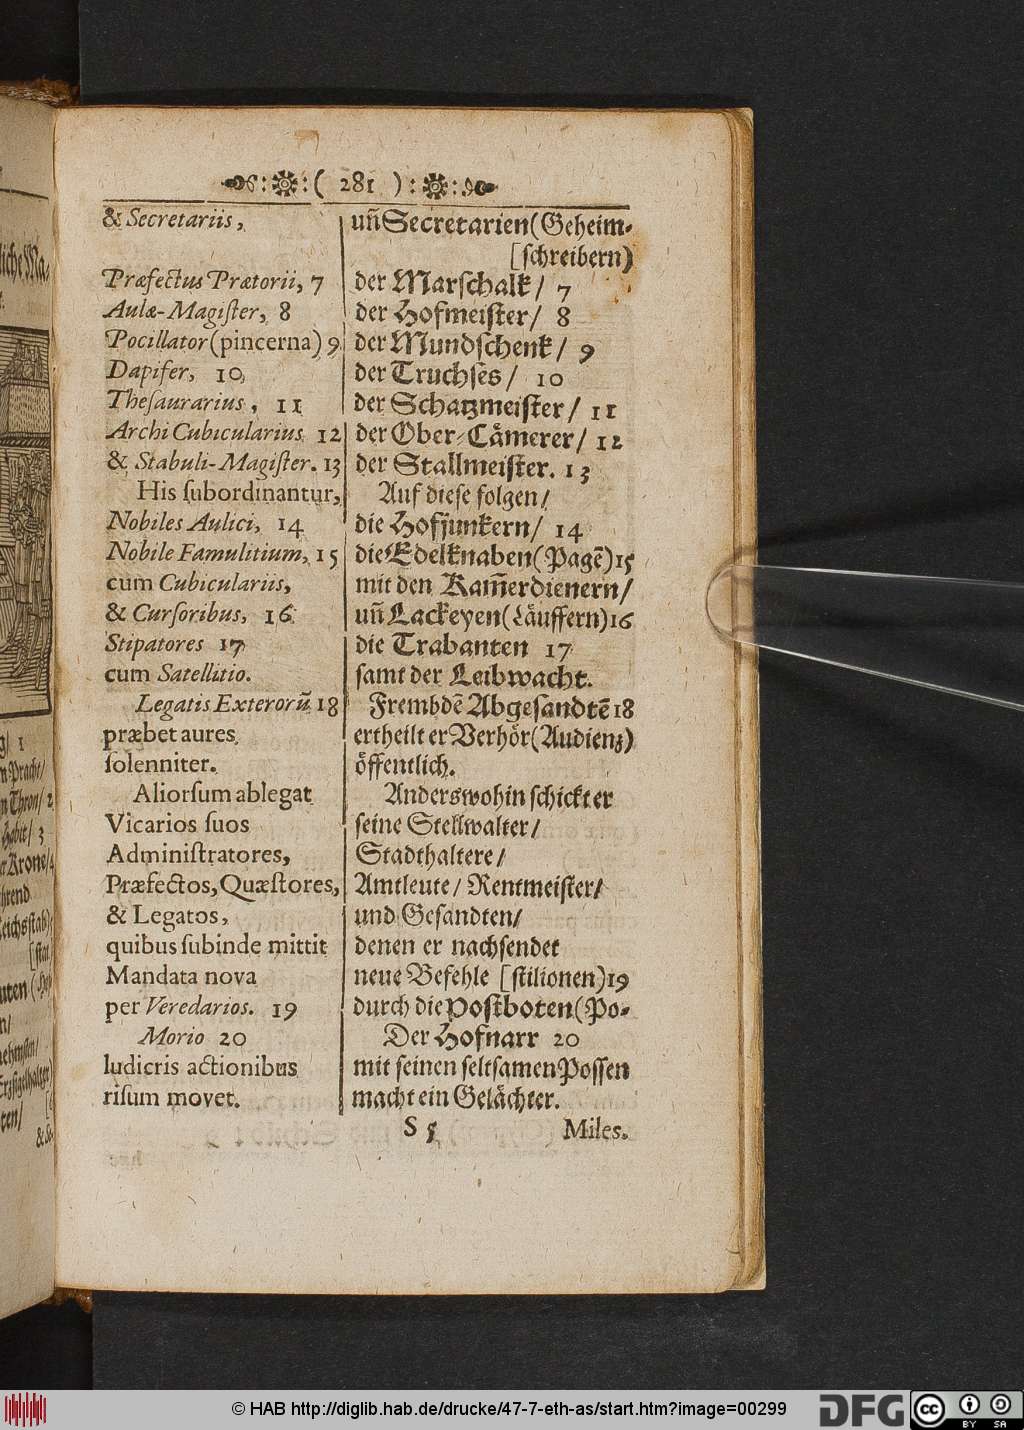 ( 281 )
& Secretariis,
Præfectus Prætorii, 7
Aulæ-Magiſter, 8
Pocillator (pincerna) 9
Dapifer, 10
Theſaurarius, 11
Archi Cubicularius 12
& Stabuli-Magiſter. 13
His ſubordinantur,
Nobiles Aulici, 14
Nobile Famulitium, 15
cum Cubiculariis,
& Curſoribus, 16
Stipatores 17
cum Satellitio.
Legatis Exterorū 18
præbet aures
ſolenniter.
Aliorſum ablegat
Vicarios ſuos
Adminiſtratores,
Præfectos, Quæſtores,
& Legatos,
quibus ſubinde mittit
Mandata nova
per Veredarios. 19
Morio 20
ludicris actionibus
riſum movet.
uñ Secretarien (Geheim-
[ſchreibern)
der Marſchalk / 7
der Hofmeiſter / 8
der Mundſchenk / 9
der Truchſes / 10
der Schatzmeiſter / 11
der Ober-Cämerer / 12
der Stallmeiſter. 13
Auf dieſe folgen /
die Hofjunkern / 14
die Edelknaben (Pagẽ) 15
mit den Kam̃erdienern /
uñ Lackeyen (Läuffern) 16
die Trabanten 17
ſamt der Leibwacht.
Frembdẽ Abgeſandtẽ 18
ertheilt er Verhör (Audienz)
öffentlich.
Anderswohin ſchickt er
ſeine Stellwalter /
Stadthaltere /
Amtleute / Rentmeiſter /
und Geſandten /
denen er nachſendet
neue Befehle [ſtilionen) 19
durch die Poſtboten (Po-
Der Hofnarr 20
mit ſeinen ſeltſamen Poſſen
macht ein Gelächter.
S 5 Miles.
© HAB http://diglib.hab.de/drucke/47-7-eth-as/start.htm?image=00299
DFG
cc BY SA